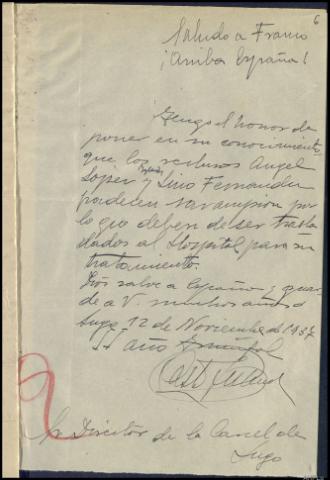 6
Saludo a Franco
¡Arriba España!
Tengo el honor de
poner en su conocimiento
que los reclusos Angel
Lopez y Lino Fernandez
padecen sarampion por
lo que deben de ser trasla
dados al Hospital para su
tratamiento.
Dios salve a España y guar
de a V. muchos años
Lugo 12 de Noviembre de 1937
II año Triunfal
Sr Director de la Carcel de
Lugo